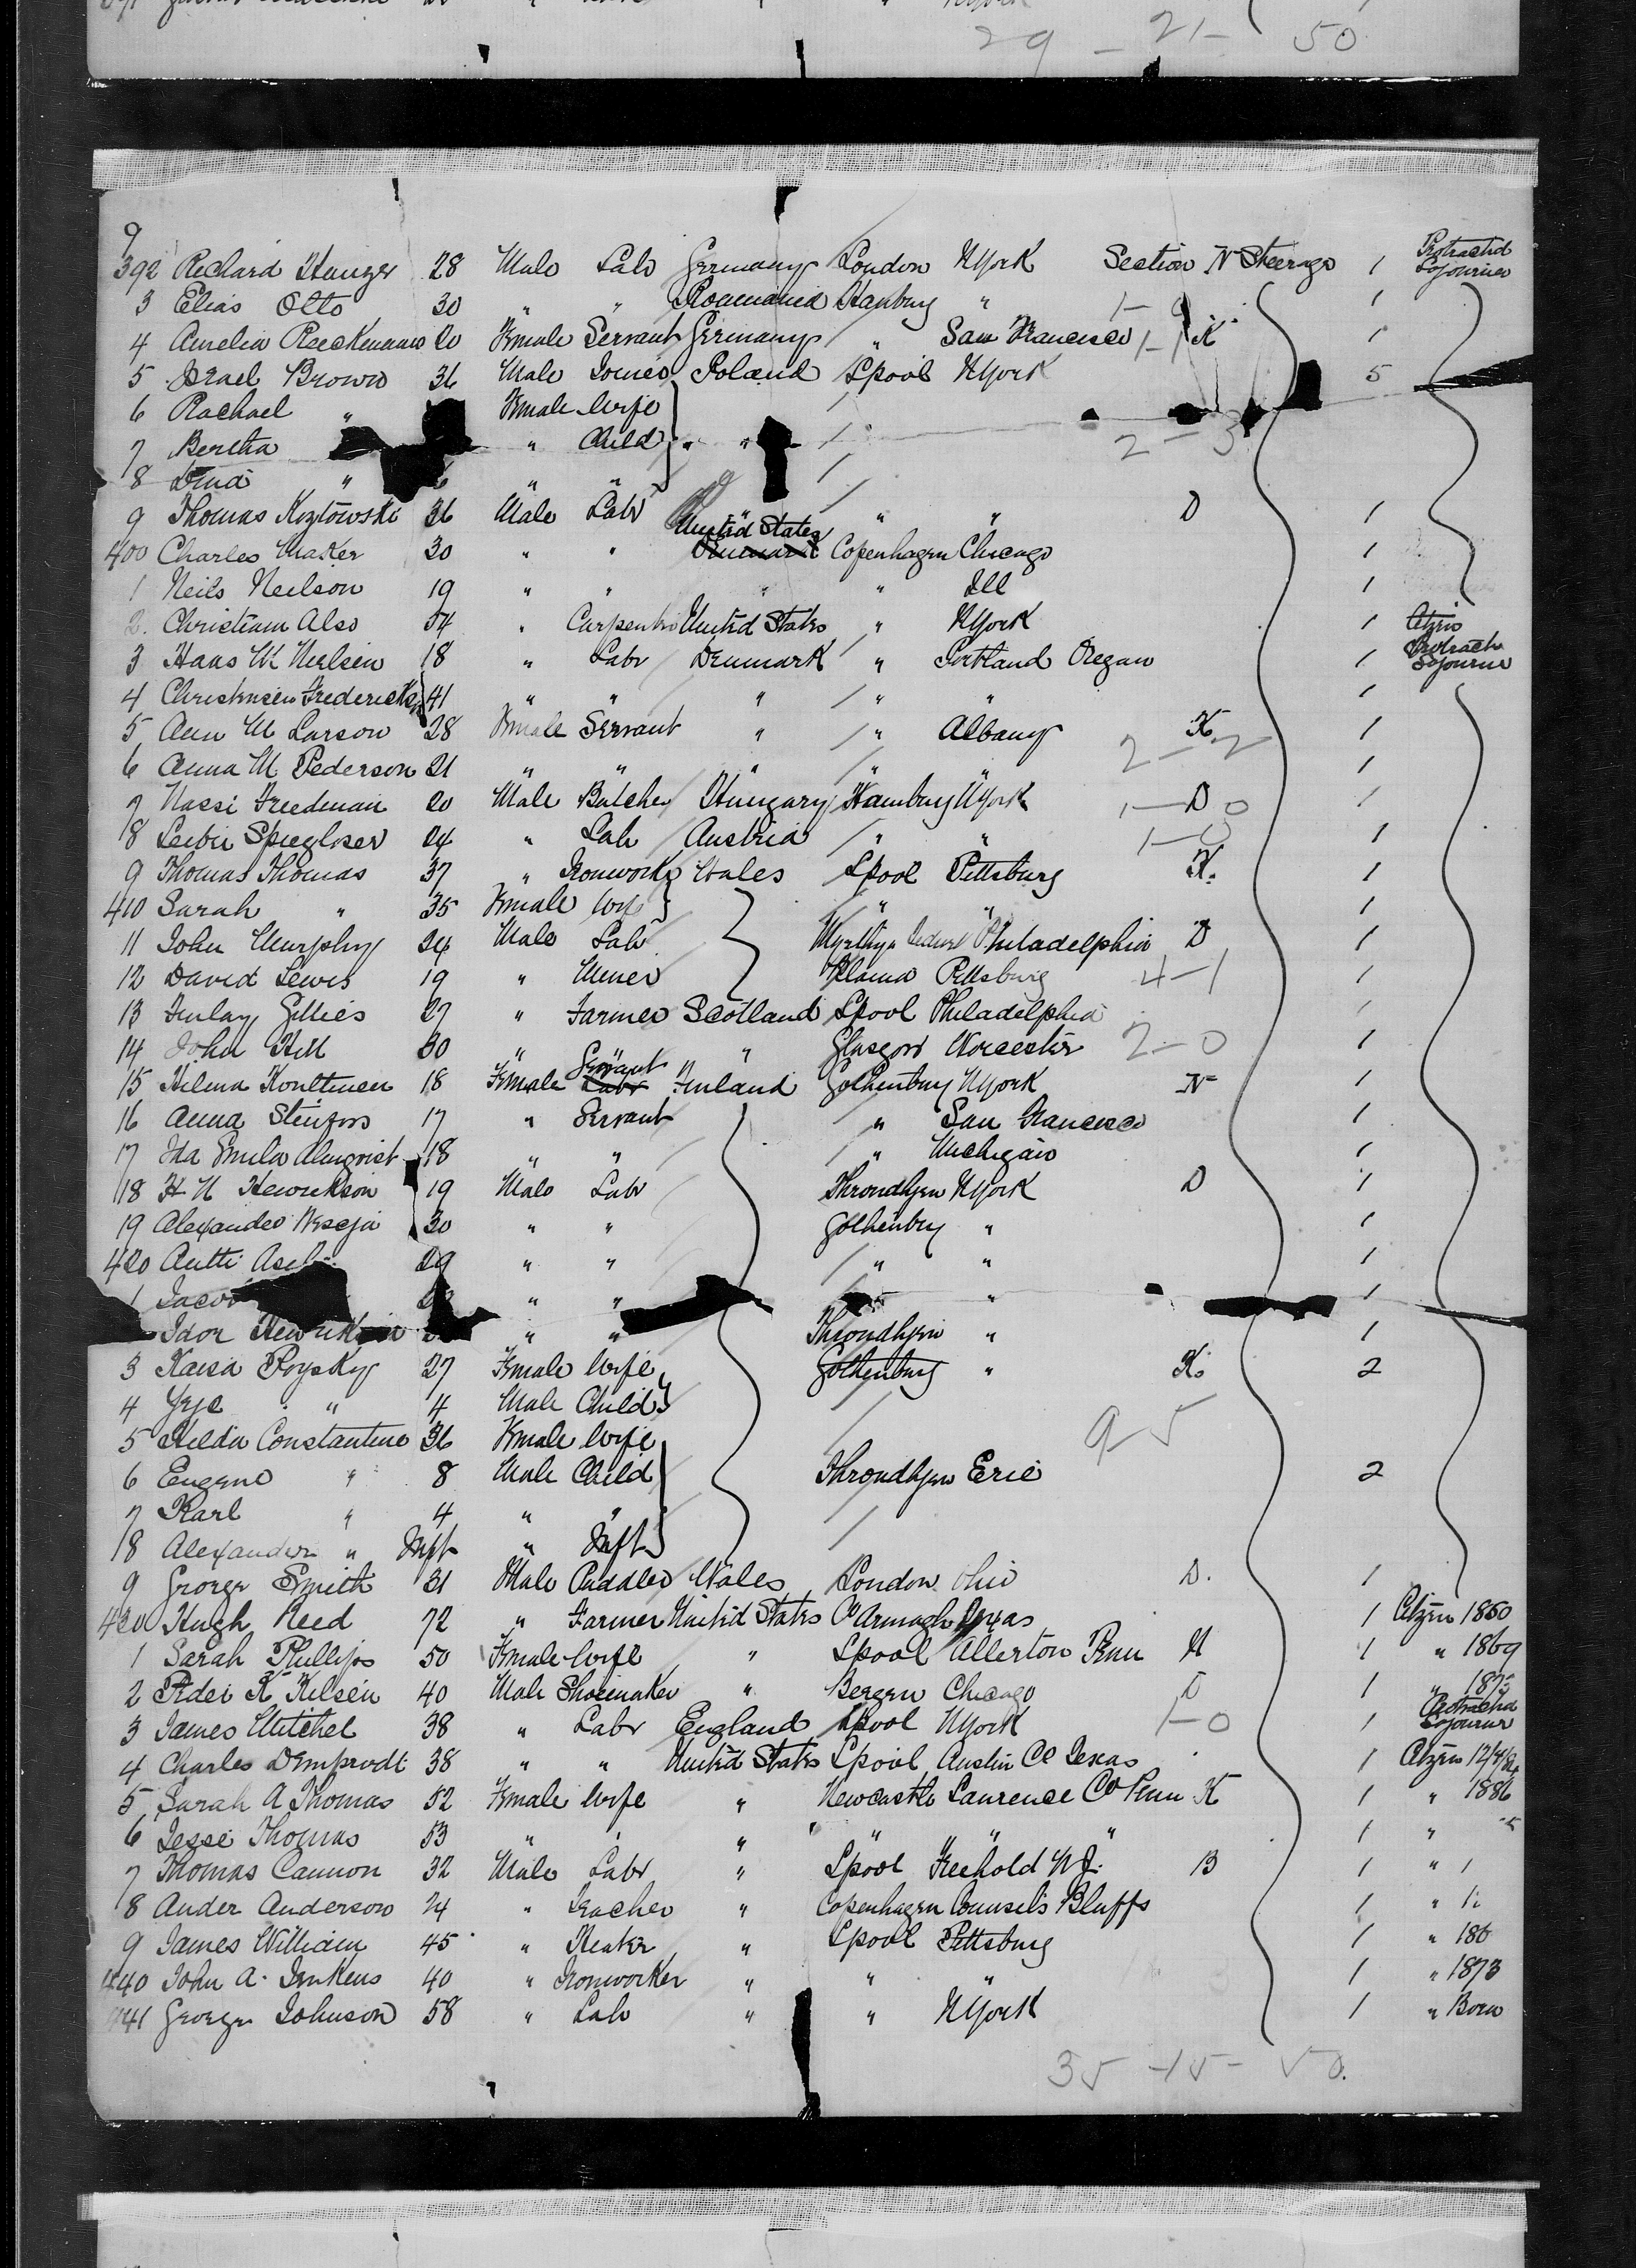 29 - 21 - 50
9
392 Richard Hunger 28 Male Labr Germany London NYork Section N Steerage 1 Protractd Sojourner
3 Elias Otto 30 " " Roumania Hamburg " 1-0 1
4 Amelia Reckmann 20 Female Servant Germany " San Francisco 1-1 K 1
5 Israel Brown 36 Male Joiner Poland Lpool NYork 5
6 Rachael " Female Wife
7 Bertha " Child " " 2-3
8 " 6 " "
9 Thomas Kozlowski 36 Male Labr " " " D 1
400 Charles Maker 30 " " United States Copenhagen Chicago 1
1 Neils Neilson 19 " " " " Ill 1
2 Christian Also 54 " Carpenter United States " NYork 1 Ctzen
3 Hans W Nielsen 18 " Labr Denmark " Portland Oregan 1 Protractd Sojourner
4 Christensen Fredericks 41 " " " " " 1
5 Ann M Larson 28 Female Servant " " Albany K 1
2-2
6 Anna M Pederson 21 " " " " " 1
7 Nassi Freedman 20 Male Butcher Hungary Hamburg NYork 1-0 D 1
8 Leibu 24 " Lab Austria " " 1-0 1
9 Thomas Thomas 37 " Ironworkr Wales Lpool Pittsburg K. 1
410 Sarah " 35 Female Wife " " 1
11 John Murphy 24 Male Labr Philadelphia D 1
12 David Lewis 19 " Miner Pittsburg 4-1 1
13 Finlay Gillies 27 " Farmer Scotland Lpool Philadelphia 1
14 John Hill 30 " " " Glasgow Worcester 2-0 1
15 Hilma 18 Female Servant Finland Gothenburg NYork N 1
16 Anna Stenfors 17 " Servant " San Francisco 1
17 Ida Emila Almqvist 18 " " " Michigan 1
18 H N Henrikson 19 Male Labr Throndhjem NYork D 1
19 Alexander 30 " " Gothenburg " 1
420 Antti 29 " " " " 1
1 Jacob " " " 1
Idor Henrikson " " Throndhjem " 1
3 Kaisa Poysky 27 Female Wife Gothenburg " K. 2
4 Yrje " 4 Male Child
9-5
5 Hilda Constantine 36 Female Wife
6 Eugene " 8 Male Child Throndhjem Erie 2
7 Karl " 4 " "
18 Alexander " Inft " Inft
9 George Smith 31 Male Puddler Wales London Ohio D. 1
420 Hugh Reed 72 " Farmer United States Co Armagh Texas 1 Ctzen 1860
1 Sarah Phillips 50 Female Wife " Lpool Allerton Penn N 1 " 1869
2 Peder K Kilsen 40 Male Shoemaker " Bergen Chicago D 1 " 1875
3 James Mitchel 38 " Labr England Lpool NYork 1-0 1 Protractd Sojourner
4 Charles 38 " " United States Lpool Austin Co Texas 1 Ctzen
5 Sarah A Thomas 52 Female Wife " Newcastle Laurence Co Penn K 1 " 1886
6 Jesse Thomas 53 " " " " " " 1 "
7 Thomas Cannon 32 Male Labr " Lpool Freehold N J. B 1 "
8 Ander Anderson 24 " Teacher " Copenhagen Counsels Bluffs 1 "
9 James William 45 " Heater " Lpool Pittsburg 1 " 186
440 John A. Jenkens 40 " Ironworker " " " 1 " 1873
441 George Johnson 58 " Lab " " NYork 1 " Born
35 - 15 - 50.